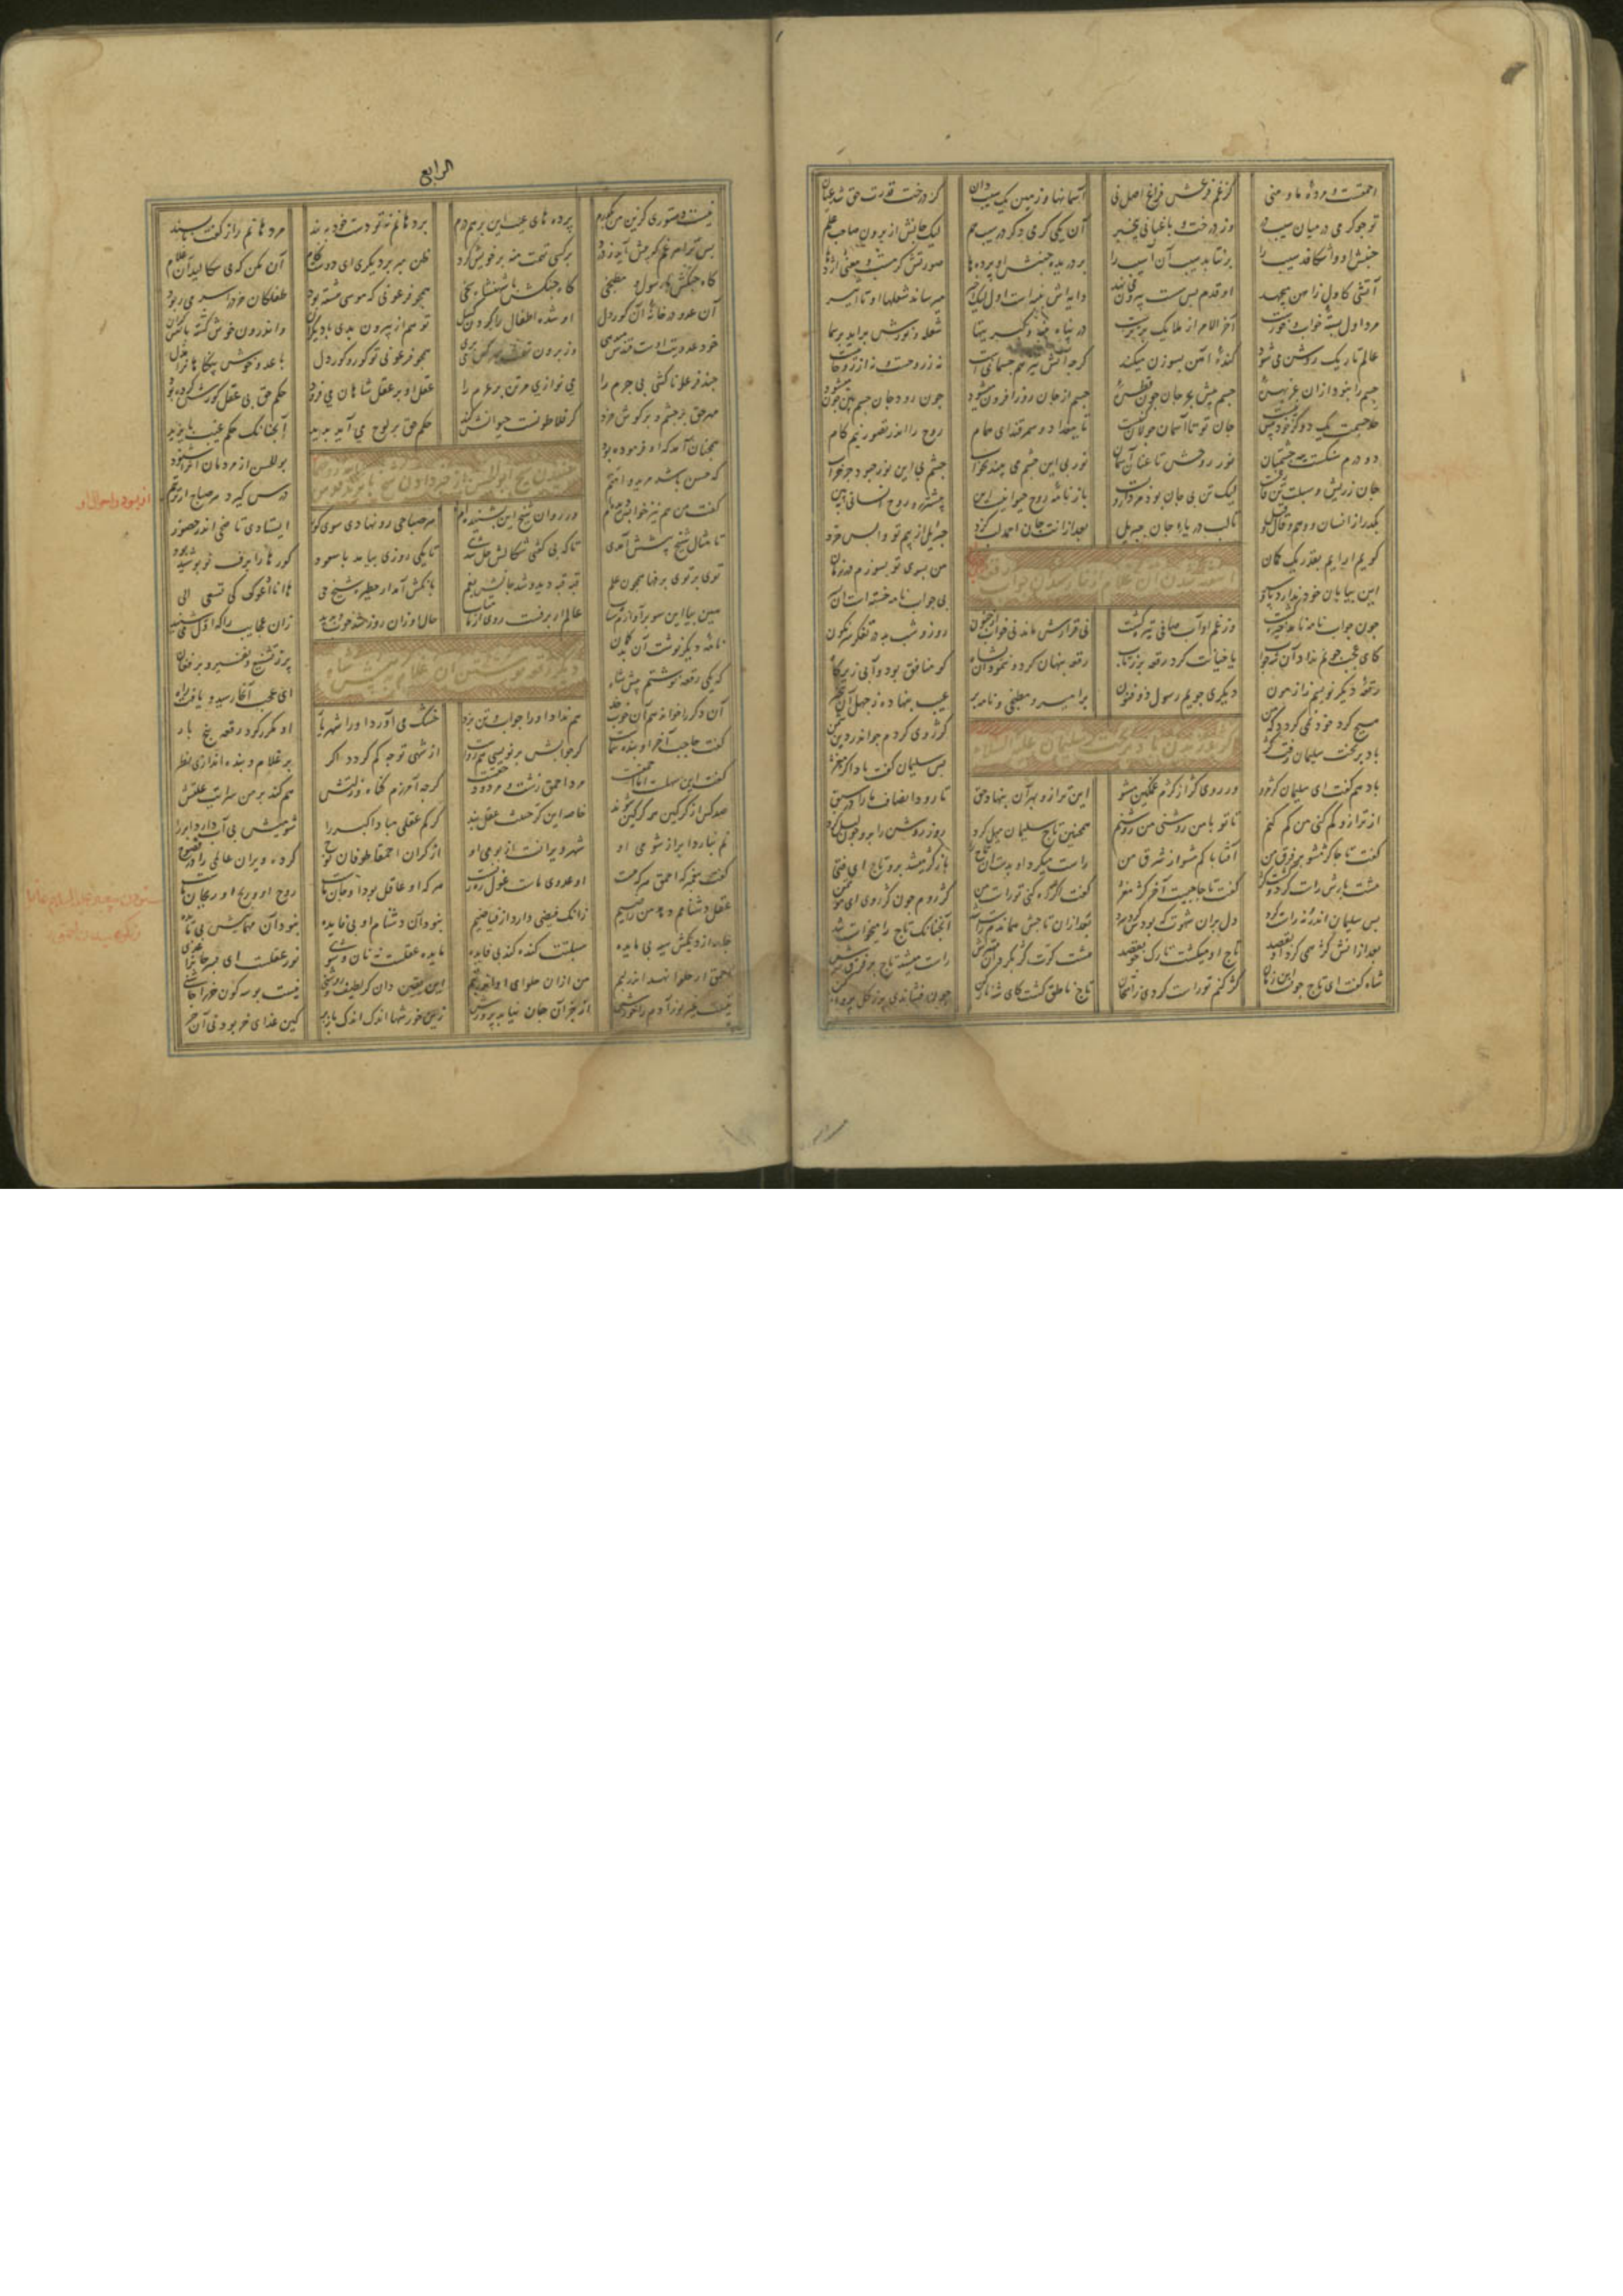 احمقست و مردهٔ ما و منی کز غم فرعش فراغ اصل نی آسمانها و زمین یک سیب دان کز درخت قدرت حق شد عیان
تو چو کرمی در میان سیب در وز درخت و باغبانی بیخبر آن یکی کرمی دگر در سیب هم لیک جانش از برون صاحب علم
جنبش او وا شکافد سیب را برنتابد سیب آن آسیب را بر دریده جنبش او پرده ها صورتش کرمست و معنی اژدها
آتشی کاول ز آهن میجهد او قدم بس سست بیرون می نهد دایه اش پنبه است اول لیک اخیر میرساند شعلها او تا اثیر
مرد اول بستهٔ خواب و خورست آخر الامر از ملایک برترست در پناه پنبه و کبریتها شعله و نورش برآید بر سما
عالم تاریک روشن می شود کندهٔ آهن بسوزن میکند گرچه آتش نیز هم جسمانی است نه ز روحست و نه از روحانی است
جسم را نبود از آن عز بهره‌ای جسم پیش بحر جان چون قطره‌ای جسم از جان روز افزون میشود چون رود جان جسم بین چون میشود
حد جسمت یک دو گز خود بیش نیست جان تو تا آسمان جولان کنیست تا ببغداد و سمرقند ای همام روح را اندر تصور نیم گام
دو درم سنگست پیه چشمتان نور روحش تا عنان آسمان نور بی این چشم می بیند بخواب چشم بی این نور چبود جز خراب
جان ز ریش و سبلت تن فارغست لیک تن بی جان بود مردار و پست باز نامهٔ روح حیوانیست این پیشتر رو روح انسانی ببین
بگذر از انسان و هم و قال و قیل تا لب دریای جان جبرئیل بعد از آنت جان احمد لب گزد جبرئیل از بیم تو واپس خزد
گویم ار آیم بقدر یک کمان من بسوی تو بسوزم در زمان
آشفتن آن غلام از نارسیدن جواب رقعه
این بیابان خود ندارد پا و سر بی جواب نامه خسته است آن
چون جواب نامه نامد خیره گشت وز غم او آب صافی تیره گشت نی قرارش ماند نی خواب و جنون روز و شب بد در تفکر سرنگون
کای عجب چونم نداد آن شه جواب یا خیانت کرد رقعه بر ز تاب رقعه پنهان کرد و ننمود آن بشاه کو منافق بود و آبی زیر کاه
رقعهٔ دیگر نویسم ز آزمون دیگری جویم رسول ذو فنون بر امیر و مطبخی و نامه بر عیب بنهاده ز جهل آن
هیچ گرد خود نمی گردد که من کژ روی کردم چو اندر دین شمن
کژ وزیدن باد بر تخت سلیمان علیه السلام
باد بر تخت سلیمان رفت کژ پس سلیمان گفت بادا کژ مغژ
باد هم گفت ای سلیمان کژ مرو ور روی کژ از کژم غمگین مشو این ترازو بهر آن بنهاد حق تا رود انصاف ما را در سبق
از ترازو کم کنی من کم کنم تا تو با من روشنی من روشنم همچنین تاج سلیمان میل کرد روز روشن را برو چون لیل کرد
گفت تاجا کژ مشو بر فرق من آفتابا کم مشو از شرق من راست میکرد او بدست آن تاج را باز کژ میشد برو تاج ای فتی
هشت بارش راست کرد و گشت کژ گفت تاجا چیست آخر کژ مغژ گفت اگر صد ره کنی تو راست من کژ روم چون کژ روی ای مؤتمن
پس سلیمان اندرونه راست کرد دل بران شهوت که بودش کرد سرد بعد از آن تاجش همان دم راست شد آنچنانک تاج را میخواست شد
بعد از آنش کژ همی کرد او بقصد تاج او میگشت تارک جو بقصد هشت کرت کژ بکرد آن مهترش راست میشد تاج بر فرق سرش
شاه گفت ای تاج چونست این زمان کژ کنم تو راست گردی ز امتحان تاج ناطق گشت کای شه ناز کن چون فشاندی پر ز گل پرواز کن
الرابع
نیست دستوری کزین من بگذرم پرده های غیب این بر هم درم بر دهانم نه تو دست خود ببند مر دهانم را ز گفت ناپسند
پس ترا هر غم که پیش آید ز درد بر کسی تهمت منه بر خویش گرد ظن مبر بر دیگری ای دوست کام آن مکن که می سگالید آن غلام
گاه جنگش با رسول و مطبخی گاه جنگش با شهنشاه سخی همچو فرعونی که موسی هشته بود طفلکان خلق را سر می ربود
آن عدو در خانهٔ آن کور دل او شده اطفال را گردن گسل تو هم از بیرون بدی با دیگران و اندرون خوش گشته با نفس گران
خود عدوت اوست قندش میدهی وز برون تهمت بهر کس می نهی همچو فرعونی تو کور و کور دل با عدو خوش بیگناهانرا مذل
چند فرعونا کشی بی جرم را می نوازی مر تن پر غرم را عقل او بر عقل شاهان می فزود حکم حق بی عقل و کورش کرده بود
مهر حق بر چشم و بر گوش خرد گر فلاطونست حیوانش کند حکم حق بر لوح می آید پدید آنچنانک حکم غیب بایزید
همچنان آمد که او فرموده بود بوالحسن از مردمان آنرا شنود
شنیدن شیخ ابوالحسن از خبر دادن شیخ بایزید
از بود و احوال او
که حسن باشد مرید و امتم درس گیرد هر صباح از تربتم
گفت من هم نیز خوابش دیده‌ام وز روان شیخ این بشنیده‌ام هر صباحی رو نهادی سوی گور ایستادی تا ضحی اندر حضور
تا مثال شیخ پیشش آمدی تا که بی گفتی شکالش حل شدی تا یکی روزی بیامد با سعود گورها را برف نو پوشیده بود
توی بر توی برفها همچون علم قبه قبه دید و شد جانش بغم بانگش آمد از حظیرهٔ شیخ حی ها انا ادعوک کی تسعی الی
هین بیا این سو بر آوازم شتاب عالم ار برفست روی از من متاب حال او زان روز شد خوب و بدید زان عجایب را که اول می شنید
دیگر رقعه نوشتن آن غلام پیش شاه
نامهٔ دیگر نوشت آن بدگمان پر ز تشنیع و نفیر و پر فغان
که یکی رقعه نوشتم پیش شاه ای عجب آنجا رسید و یافت راه
آن دگر را خواند هم آن خوب خد هم نداد او را جواب و تن بزد خشک می آورد او را شهریار او مکرر کرد رقعه پنج بار
گفت حاجب آخر او بندهٔ شماست گر جوابش بر نویسی هم رواست از شهی تو چه کم گردد اگر بر غلام و بنده اندازی نظر
گفت این سهلست اما احمقست مرد احمق زشت و مردود حقست گرچه آمرزم گناه و زلتش هم کند بر من سرایت علتش
صد کس از گرگین همه گرگین شوند خاصه این گر خبیث عقل بند گر کم عقلی مبادا گبر را شومیش بی آب دارد ابر را
نم نبارد ابر از شومی او شهر ویرانست از بومی او از گر آن احمقان طوفان نوح کرد ویران عالمی را در فضوح
گفت پیغمبر که احمق هر که هست او عدوی ماست غول رهزنست هر که او عاقل بود او جان ماست روح او و ریح او ریحان ماست
عقل دشنامم دهد من راضیم زانک فیضی دارد از فیاضیم نبود آن دشنام او بی فایده نبود آن مهمانیش بی مایده
احمق ار حلوا نهد اندر لبم من از آن حلوای او اندر تبم این یقین دان گر لطیف و روشنی نیست بوسهٔ کون خر را چاشنی
ستودن پیغمبر علیه السلام عاقل را
و نکوهیدن احمق را
سبلتت گنده کند بی فایده جامه از دیگش سیه بی مایده مایده عقلست نه نان و شوی نور عقلست ای پسر جان را غذی
نیست غیر نور آدم را خورش از جز آن جان نیابد پرورش زین خورشها اندک اندک باز بر کین غذای خر بود نی آن حر